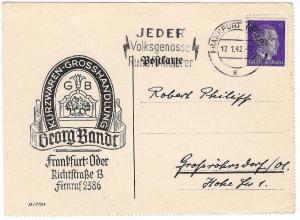 JEDER
Volksgenosse
Rundfunkhörer
Postkarte
FRANKFURT (ODER)
17.1.42
e
KURZWAREN-GROSSHANDLUNG
G B
Georg Bandt
Frankfurt-Oder
Richtstraße 13
Fernruf 2386
Robert Philipp
Großröhrsdorf/Ol.
Hohe Str. 1
M/0054